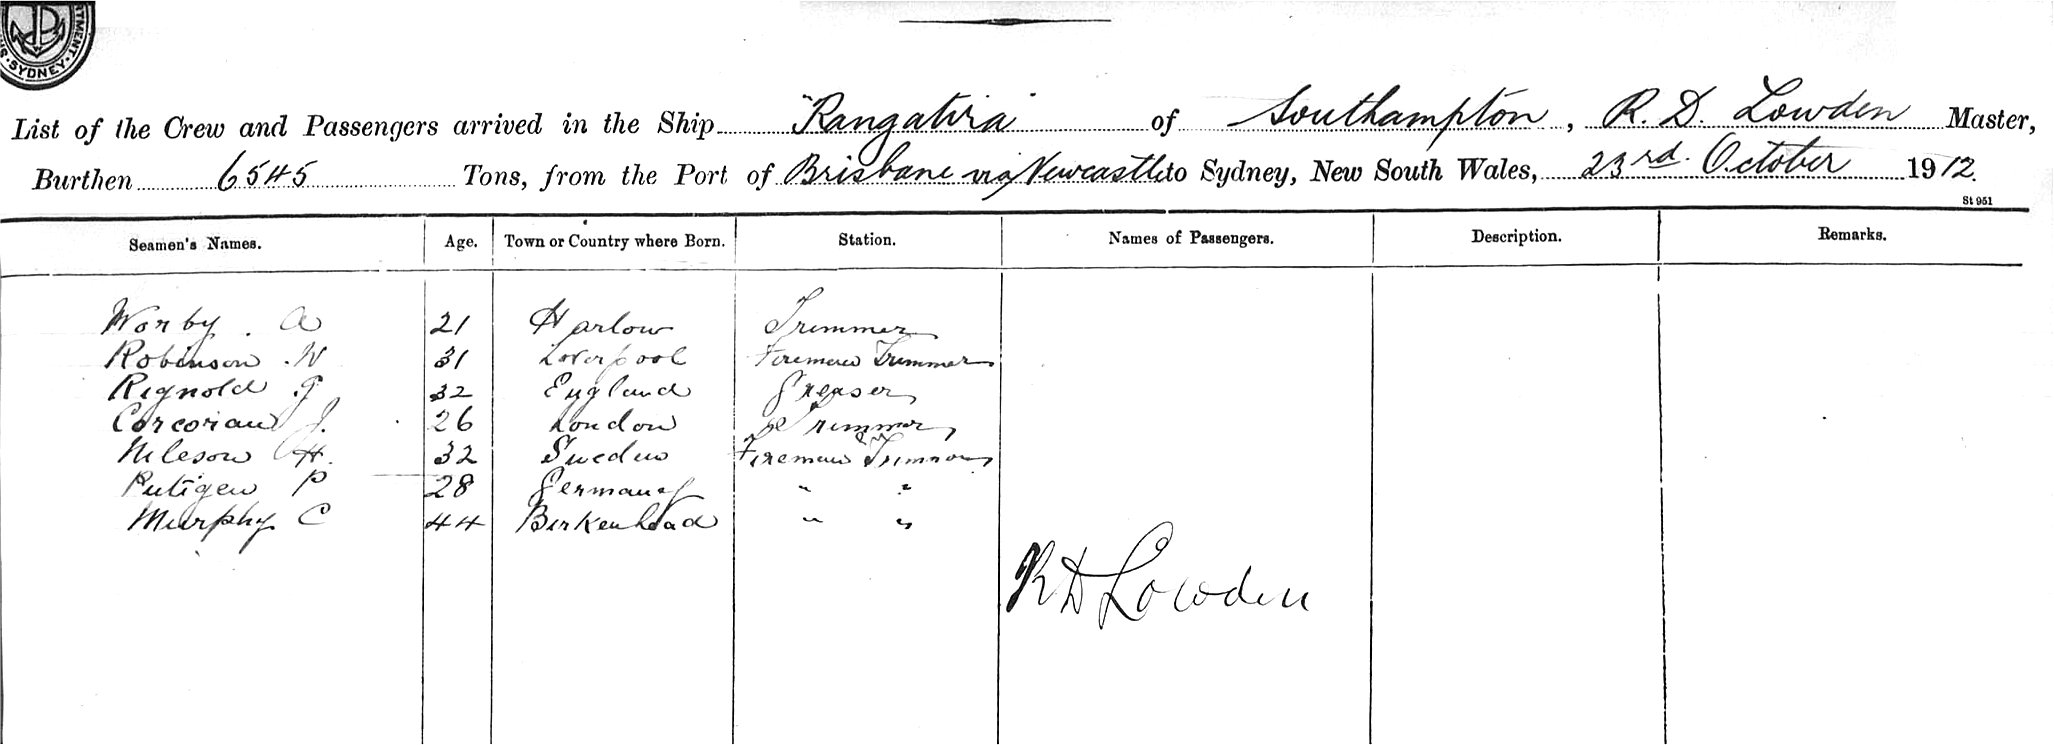 SYDNEY
List of the Crew and Passengers arrived in the Ship "Rangatira" of Southampton, R. D. Lowden Master,
Burthen 6545 Tons, from the Port of Brisbane via Newcastle to Sydney, New South Wales, 23rd. October 1912.
St 951
Seamen's Names. Age. Town or Country where Born. Station. Names of Passengers. Description. Remarks.
Worby. A 21 Harlow Trimmer
Robinson. W 31 Liverpool Fireman Trimmer
Rignold. G 32 England Greaser
Corcoran J. 26 London Trimmer
Nileson H. 32 Sweden Fireman & Trimmer
Rutigen P 28 Germany " "
Murphy C 44 Birkenhead " "
R D Lowden